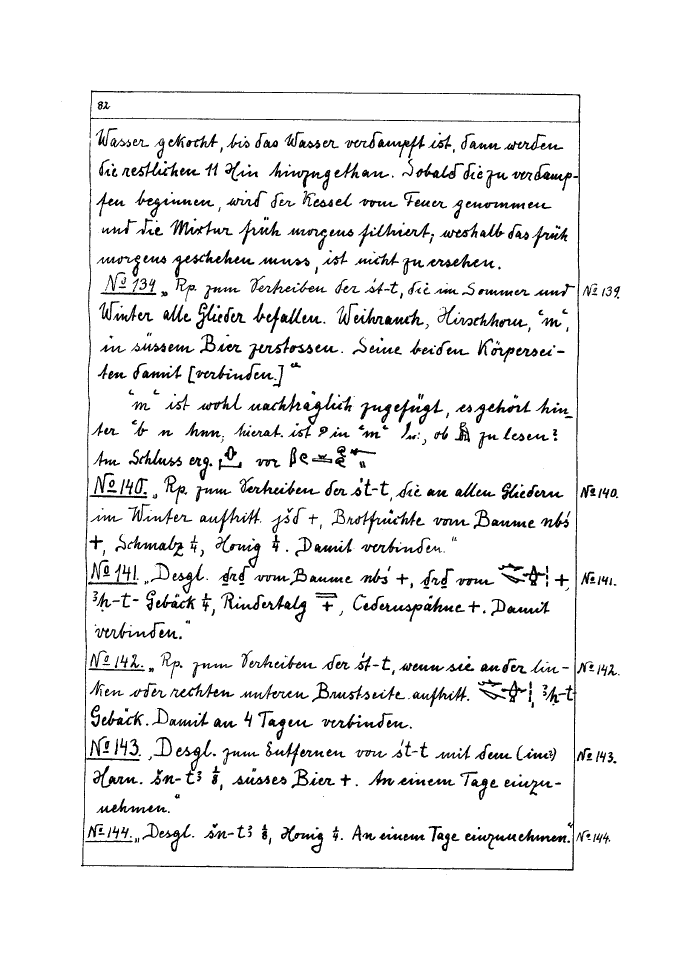 82
Wasser gekocht, bis das Wasser verdampft ist, dann werden
die restlichen 11 Hin hinzugethan. Sobald die zu verdamp-
fen beginnen, wird der Kessel vom Feuer genommen
und die Mixtur früh morgens filtriert; weshalb das früh
morgens geschehen muss, ist nicht zu ersehen.
№ 139 „ Rp. zum Vertreiben der śt-t, die im Sommer und № 139.
Winter alle Glieder befallen. Weihrauch, Hirschhorn, ʿmʿ,
in süssem Bier zerstossen. Seine beiden Körpersei-
ten damit [verbinden.]“
ʿmʿ ist wohl nachträglich zugefügt, es gehört hin_
ter ʿb n hnn; hierat. ist in ʿmʿ ob zu lesen?
Am Schluss erg. vor
№ 140. „ Rp. zum Vertreiben der śt-t, die an allen Gliedern № 140.
im Winter auftritt. jšd +, Brotfrüchte vom Baume nbś
+, Schmalz ¼, Honig ¼. Damit verbinden.“
№ 141. „Desgl. ḏrḏ vom Baume nbś +, ḏrḏ vom +, № 141.
ꜣḫ-t- Gebäck ¼, Rindertalg +, Cedernspähne +. Damit
verbinden.“
№ 142. „ Rp. zum Vertreiben der śt-t, wenn sie an der lin- № 142.
ken oder rechten unteren Brustseite auftritt. ꜣḫ-t
Gebäck. Damit an 4 Tagen verbinden.
№ 143. „Desgl. zum Entfernen von śt-t mit dem № 143.
Harn. šn-tꜣ ⅛, süsses Bier +. An einem Tage einzu-
nehmen.“
№ 144. „Desgl. šn-tꜣ ⅛, Honig ¼. An einem Tage einzunehmen.“ № 144.